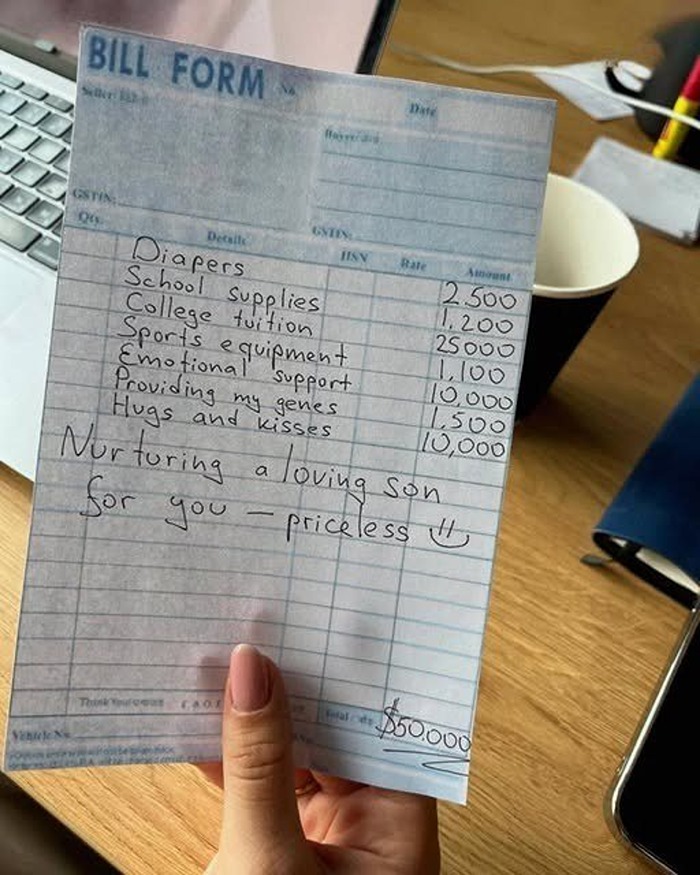 BILL FORM No.
Date
Seller
Buyer
GSTIN:
GSTIN:
Qty. Details HSN Rate Amount
Diapers 2.500
School supplies 1.200
College tuition 25000
Sports equipment 1,100
Emotional support 10,000
Providing my genes 1.500
Hugs and kisses 10,000
Nurturing a loving son
for you – priceless
Thank You
Total $50.000
Vehicle No.